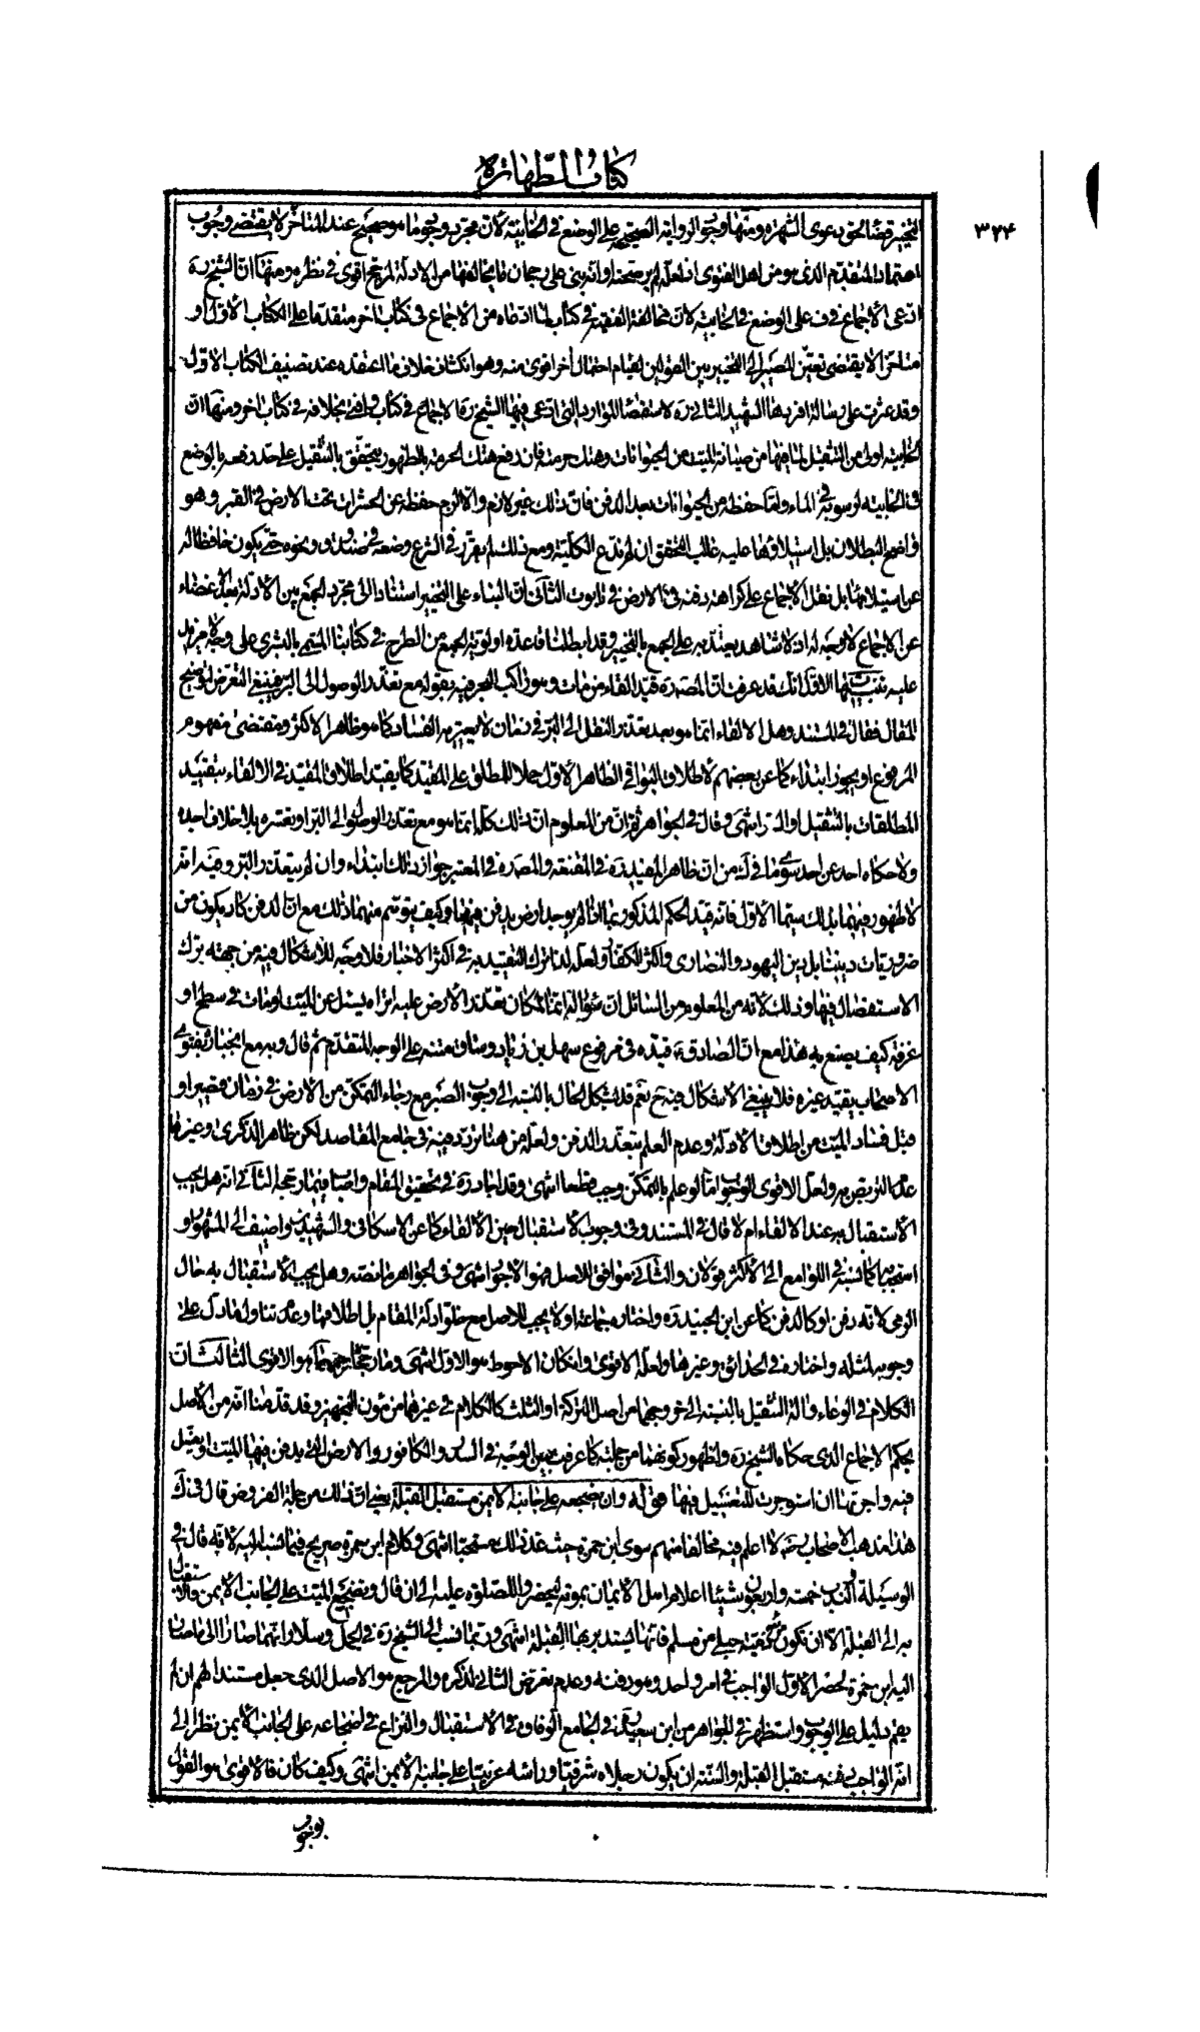 كتاب الطهارة
٣٢۴
التخيير قضاء لحق دعوى الشهرة ومنها وجود الرواية الصحيحة على الوضع في الخابية لأن مجرد وجود ما هو صحيح عند المتأخر لا يقتضي وجوب
اعتماد المتقدم الذي هو من اهل الفتوى اذ لعله لم يرصحته او انه بنى على رجحان ما يخالفها من الادلة لمرجح اقوى في نظره ومنها ان الشيخ ره
ادعى الاجماع في ف على الوضع في الخابية لان مخالفة الفقيه في كتاب لما ادعاه من الاجماع في كتاب اخر متقدما على الكتاب الأول او
متاخرا لا يقتضي تعين المصير الى التخيير بين القولين لقيام احتمال اخر اقوى منه وهو انكشاف خلاف ما اعتقده عند تصنيف الكتاب الاول
وقد عثرت على رسالة افردها الشهيد الثاني ره لاستقصاء الموارد التي ادعى فيها الشيخ ره الاجماع في كتاب وافتى بخلافه في كتاب اخر ومنها ان
الخابية اولى من التثقيل لما فيها من صيانة الميت عن الحيوانات وهتك حرمته فان دفع هتك الحرمة بالظهور يتحقق بالتثقيل على حد دفعه بالوضع
في الخابية لرسوبه في الماء واما حفظه من الحيوانات بعد الدفن فان ذلك غير لازم والا لزم حفظه عن الحشرات تحت الارض في القبر وهو
واضح البطلان بل استيلاؤها عليه غالب التحقق ان لم ندع الكلية ومع ذلك لم يقرر في الشرع وضعه في صندوق ونحوه حتى يكون حافظا له
عن استيلائها بل نقل الاجماع على كراهة دفنه في الارض في تابوت الثاني ان البناء على التخيير استنادا الى مجرد الجمع بين الادلة بعد الاغضاء
عن الاجماع لا وجه له اذ لا شاهد يعتد به على الجمع بالتخيير وقد ابطلنا قاعدة اولوية الجمع من الطرح في كتابنا المسمى بالبشرى على وجه لا مزيد
عليه تنبيهات الاول انك قد عرفت ان المصنف ره قيد القاء من مات وهو راكب البحر فيه بقوله مع تعذر الوصول الى البر فينبغي التعرض لتوضيح
المقال فقال في المستند وهل الالقاء انما هو بعد تعذر النقل الى البر في زمان لا يعتريه الفساد كما هو ظاهر الاكثر ومقتضى مفهوم
المرفوع او يجوز ابتداء كما عن بعضهم لاطلاق البواقي الظاهر الاول حملا للمطلق على المقيد كما يقيد اطلاق المقيد في الالقاء بتقييد
المطلقات بالتثقيل او الستر انتهى وقال في الجواهر ثم ان من المعلوم ان ذلك كله انما هو مع تعذر الوصول الى البر او تعسره بلا خلاف اجده
ولا حكاه احد عن احد سوى ما في ك من ان ظاهر المفيد ره في المقنعة والمصنف ره في المعتبر جواز ذلك ابتداء وان لم يتعذر البر وفيه انه
لا ظهور فيهما بذلك سيما الاول فانه قيد الحكم المذكور بما اذا لم يوجد ارض يدفن فيها وكيف يتوسم منهما ذلك مع ان الدفن كاد يكون من
ضروريات ديننا بل دين اليهود والنصارى واكثر الكفار ولعله لذا ترك التقييد به في اكثر الاخبار فلا وجه للاشكال فيه من جهة ترك
الاستفصال فيها وذلك لأنه من المعلوم من السائل ان سؤاله انما لمكان تعذر الأرض عليه اتراه يسئل عن الميت لو مات في سطح او
غرفة كيف يصنع به هذا مع ان الصادق ع قيده في مرفوع سهل بن زياد وساق متنه على الوجه المتقدم ثم قال وبه مع انجباره بفتوى
الاصحاب يقيد غيره فلا ينبغي الاشكال فيه ح نعم قد يشكل الحال بالنسبة الى وجوب الصبر مع رجاء التمكن من الارض في زمان قصير او
قبل فساد الميت من اطلاق الادلة وعدم العلم بتعذر الدفن ولعله من هنا تردد فيه في جامع المقاصد لكن ظاهر الذكرى وغيرها
عدم التربص به ولعل الاقوى الوجوب اما لو علم بالتمكن وجب قطعا انتهى وقد اجاد ره في تحقيق المقام واصاب فيما رجحه الثاني انه هل يجب
الأستقبال به عند الالقاء ام لا قال في المستند وفي وجوب الاستقبال حين الألقاء كما عن الاسكافي والشهيدين واضيف الى المشهور او
استحبابه كما نسبه في اللوامع الى الأكثر قولان والثاني موافق للاصل فهو الاجود انتهى وفي الجواهر ما نصه وهل يجب الأستقبال به حال
الرمي لانه دفن او كالدفن كما عن ابن الجنيد ره واختاره جماعة او لا يجب للاصل مع خلو ادلة المقام بل اطلاقها وعدم تناول ما دل على
وجوبه لمثله واختاره في الحدائق وغيرها ولعله الاقوى وان كان الاحوط هو الاول انتهى وما رجحاه جميعا هو الاقوى الثالث ان
الكلام في الوعاء والة التثقيل بالنسبة الى خروجهما من اصل التركة او الثلث كالكلام في غيرهما من مؤن التجهيز وقد قدمنا انه من الأصل
بحكم الاجماع الذي حكاه الشيخ ره ولظهور كونهما من جملته كما عرفت بين الوجه في السدر والكافور والارض التي يدفن فيها الميت او يغسل
فيه واجرتها ان استوجرت للتغسيل فيها قوله وان يضجعه على جانبه الايمن مستقبل القبلة يعني ان ذلك من جملة الفروض قال في ك
هذا مذهب الأصحاب حتى لا اعلم فيه مخالفا منهم سوى ابن حمزة حيث عد ذلك مستحبا انتهى وكلام ابن حمزة صريح فيما نسبه اليه لانه قال في
الوسيلة والندب خمسة واربعون شيئا اعلام اهل الأيمان بموته ليحضروا للصلوة عليه الى ان قال ويضجع الميت على الجانب الأيمن والاستقبال
به الى القبلة الا ان تكون ذمية حبلى من مسلم فانها يستدبر بها القبلة انتهى وربما نسب الى الشيخ ره في الجمل وسلار انهما صارا الى ما صار
اليه ابن حمزة لحصر الاول الواجب في امر واحد وهو دفنه وعدم تعرض الثاني لذكره والمرجع هو الاصل الذي جعل مستندا لهم ان لم
يقم دليل على الوجوب واستظهر في الجواهر من ابن سعيد في الجامع الوفاق في الاستقبال والنزاع في اضجاعه على الجانب الأيمن نظرا الى
انه الواجب دفنه مستقبل القبلة والسنة ان يكون رجلاه شرقيا وراسه غربيا على جانبه الأيمن انتهى وكيف كان فالاقوى هو القول
بوجوب